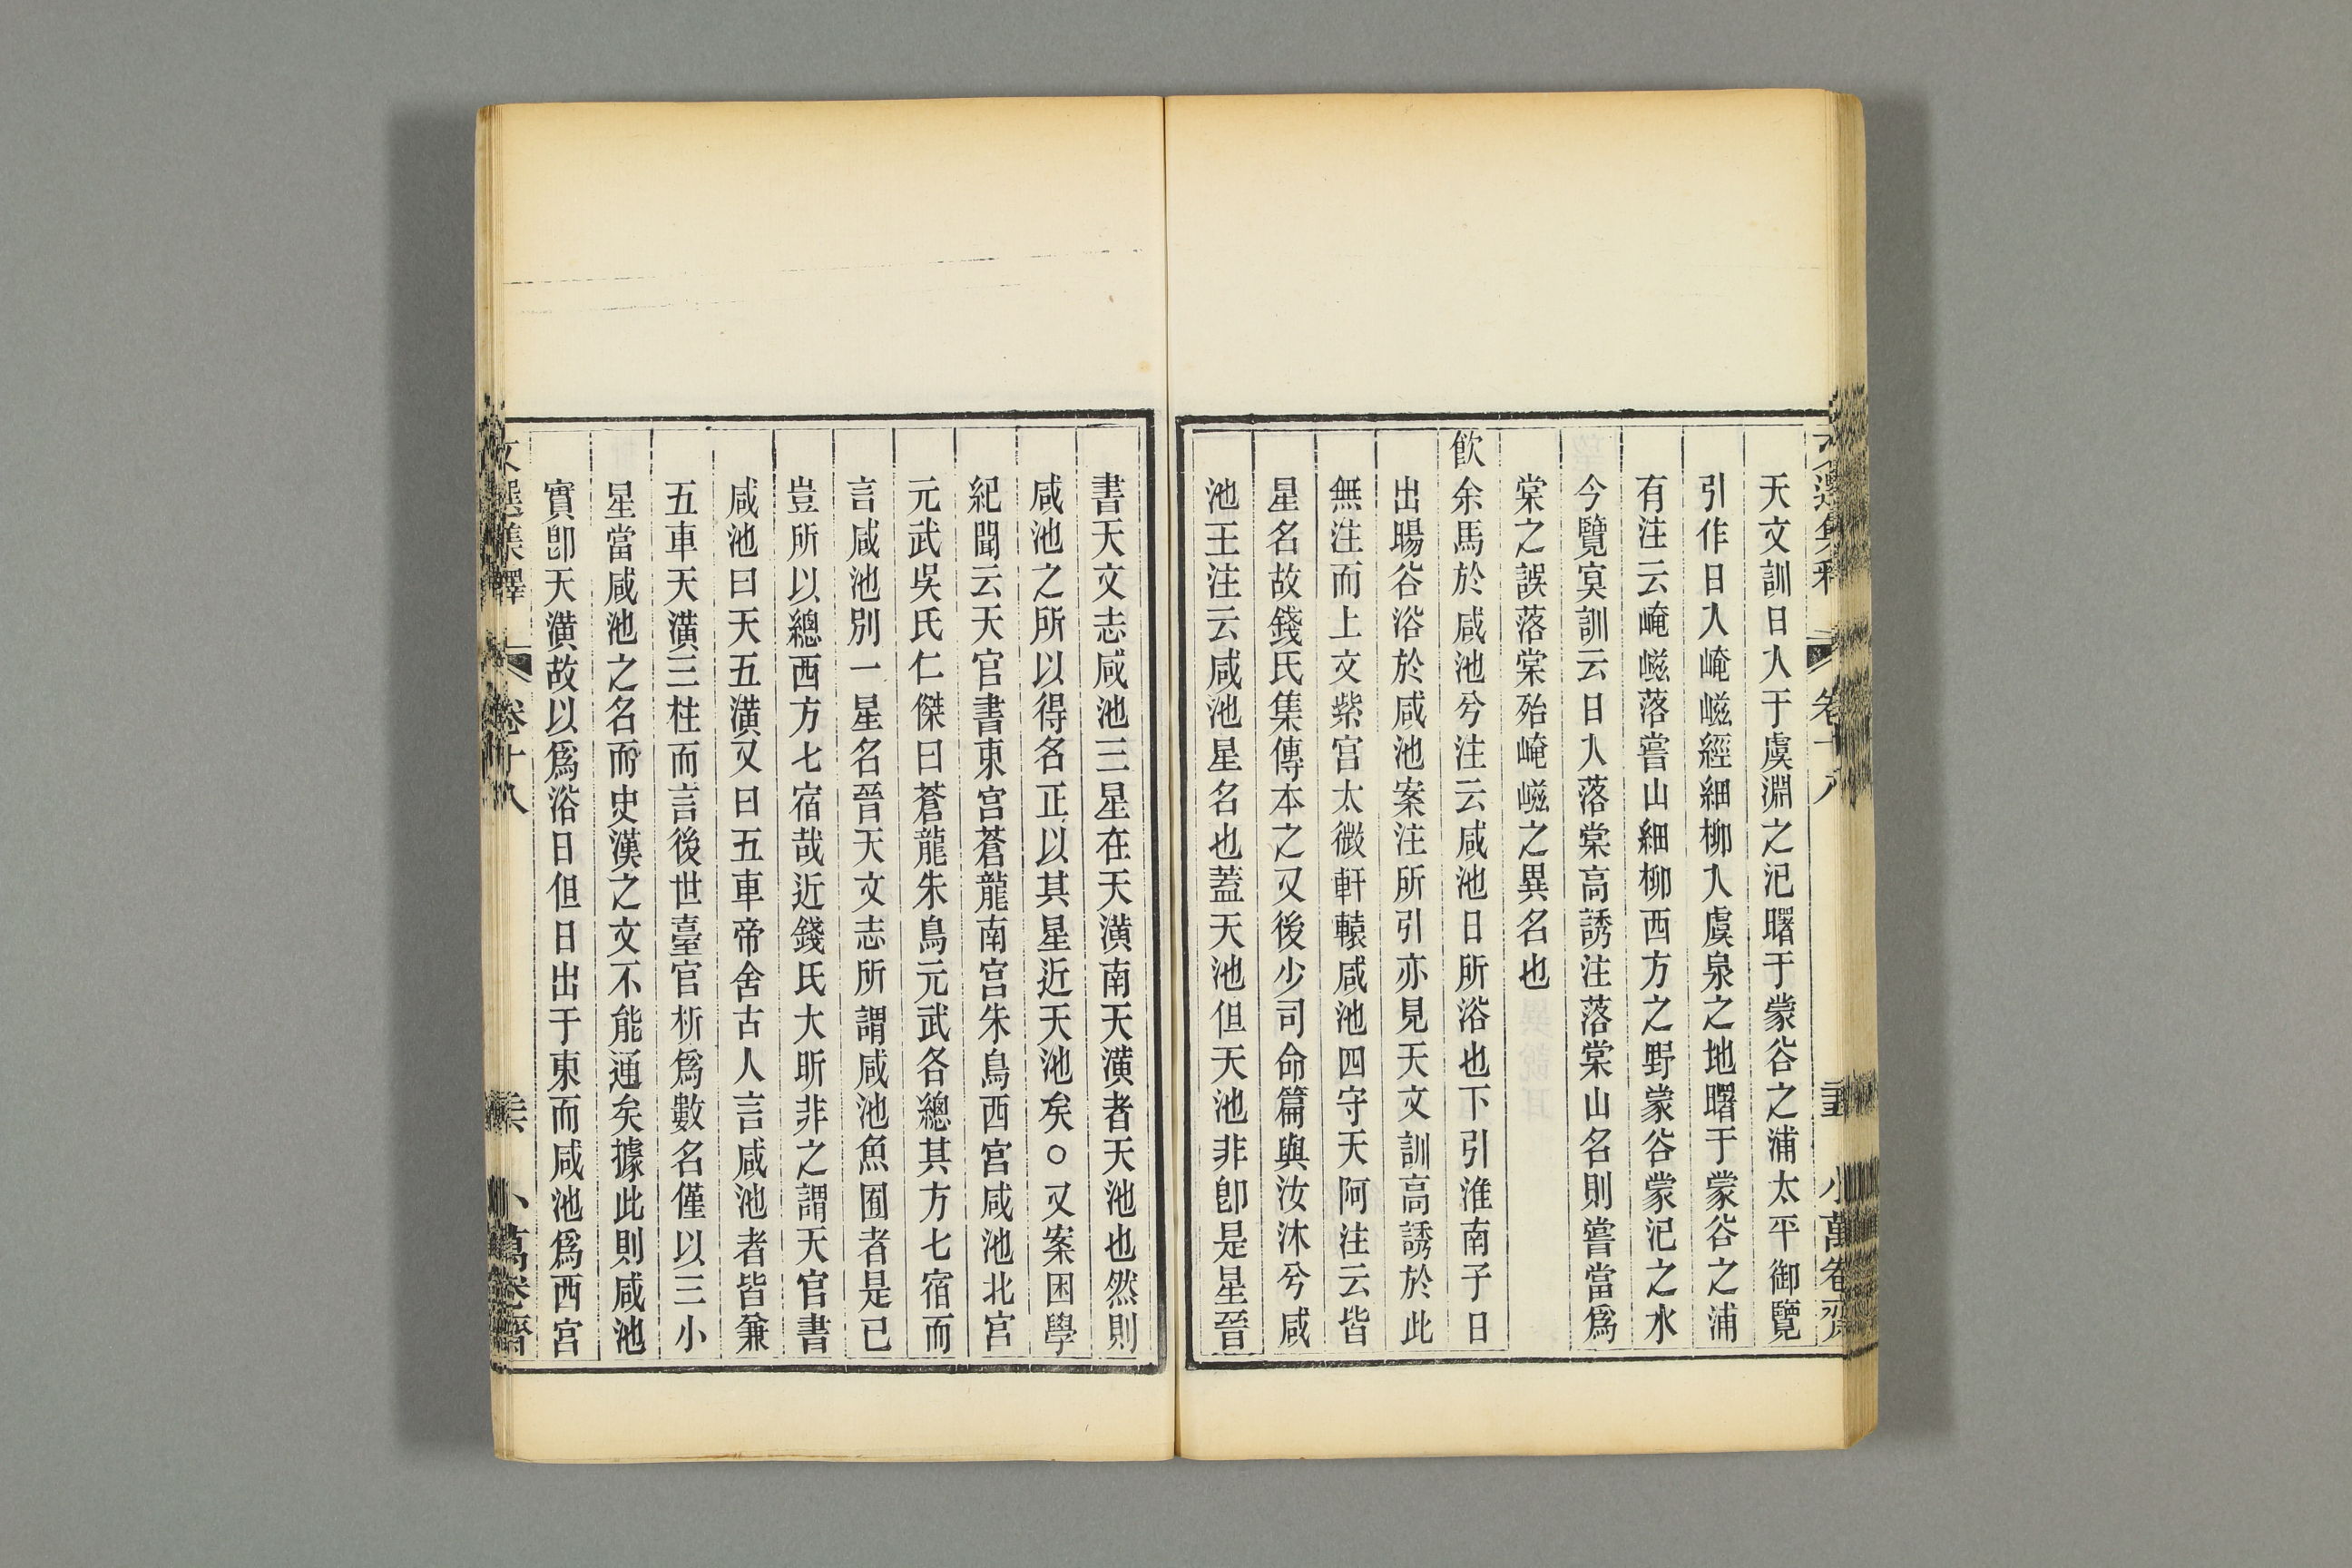 天文訓日入于虞淵之汜曙于蒙谷之浦太平御覽
引作日入崦嵫經細柳入虞泉之地曙于蒙谷之浦
有注云崦嵫落嘗山細柳西方之野蒙谷蒙汜之水
今覽㝠訓云日入落棠高誘注落棠山名則嘗當爲
棠之誤落棠殆崦嵫之異名也
飮余馬於咸池兮注云咸池日所浴也下引淮南子日
出暘谷浴於咸池案注所引亦見天文訓高誘於此
無注而上文紫宮太微軒轅咸池四守天阿注云皆
星名故錢氏集傳本之又後少司命篇與汝沐兮咸
池王注云咸池星名也蓋天池但天池非卽是星晉
書天文志咸池三星在天潢南天潢者天池也然則
咸池之所以得名正以其星近天池矣○又案困學
紀聞云天官書東宮蒼龍南宮朱鳥西宮咸池北宮
元武吳氏仁傑曰蒼龍朱鳥元武各總其方七宿而
言咸池別一星名晉天文志所謂咸池魚囿者是已
豈所以總西方七宿哉近錢氏大昕非之謂天官書
咸池曰天五潢又曰五車帝舍古人言咸池者皆兼
五車天潢三柱而言後世臺官析爲數名僅以三小
星當咸池之名而史漢之文不能通矣據此則咸池
實卽天潢故以爲浴日但日出于東而咸池爲西宮
文選集釋 卷十八 小萬卷齋